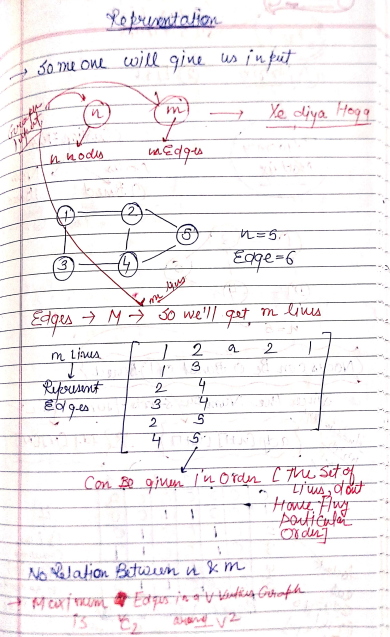 Representation
→ Someone will give us input
n m → Ye diya Hoga
n nodes m Edges
1 2
5
3 4
n=5
Edge=6
m lines
Edges → M → So we'll get m lines
m lines
↓
Represent
Edges
1 2 2 1
1 3
2 4
3 4
2 5
4 5
Can be given in Order [ The Set of
Lines, dont
Have Any
particular
Order]
No Relation Between n & m
→ Maximum Edges in a V Vertices Graph
is around V2